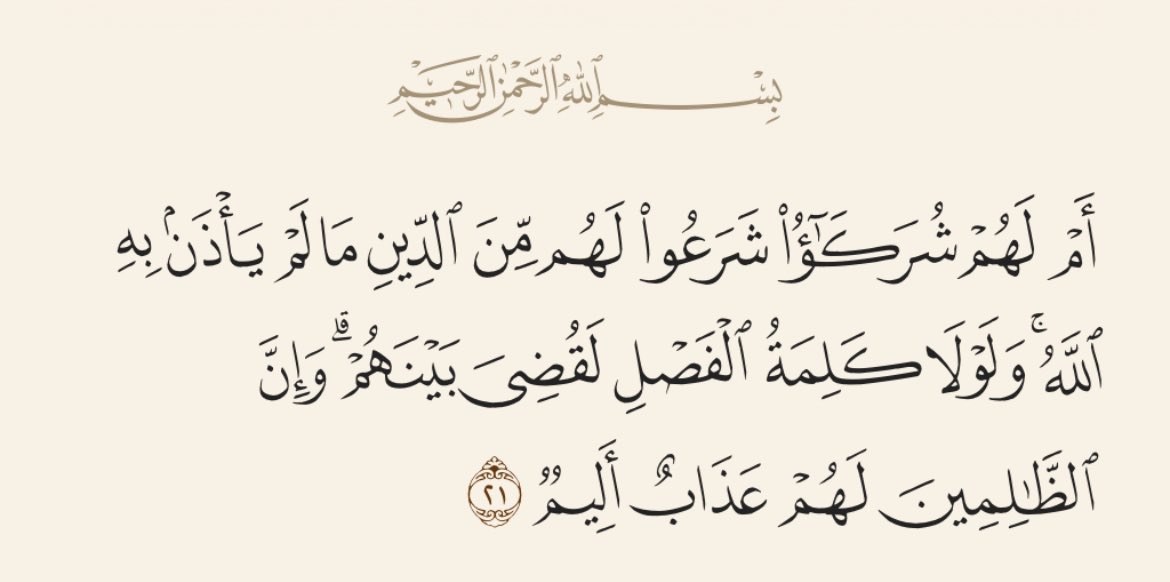 بِسْمِ ٱللَّهِ ٱلرَّحْمَٰنِ ٱلرَّحِيمِ
أَمْ لَهُمْ شُرَكَـٰٓؤُا۟ شَرَعُوا۟ لَهُم مِّنَ ٱلدِّينِ مَا لَمْ يَأْذَنۢ بِهِ
ٱللَّهُ ۚ وَلَوْلَا كَلِمَةُ ٱلْفَصْلِ لَقُضِىَ بَيْنَهُمْ ۗ وَإِنَّ
ٱلظَّـٰلِمِينَ لَهُمْ عَذَابٌ أَلِيمٌ ٢١